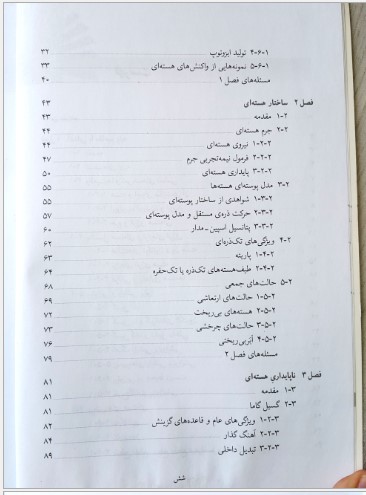 ۴-۶-۱ تولید ایزوتوپ ۳۲
۵-۶-۱ نمونه‌هایی از واکنش‌های هسته‌ای ۳۳
مسئله‌های فصل ۱ ۴۰
فصل ۲ ساختار هسته‌ای ۴۳
۱-۲ مقدمه ۴۳
۲-۲ جرم هسته‌ای ۴۴
۱-۲-۲ نیروی هسته‌ای ۴۴
۲-۲-۲ فرمول نیمه‌تجربی جرم ۴۷
۳-۲-۲ پایداری هسته‌ای ۵۰
۳-۲ مدل پوسته‌ای هسته‌ها ۵۵
۱-۳-۲ شواهدی از ساختار پوسته‌ای ۵۵
۲-۳-۲ حرکت ذره‌ی مستقل و مدل پوسته‌ای ۵۷
۳-۳-۲ پتانسیل اسپین-مدار ۶۰
۴-۲ ویژگی‌های تک‌ذره‌ای ۶۲
۱-۴-۲ پاریته ۶۳
۲-۴-۲ طیف هسته‌های تک‌ذره یا تک‌حفره ۶۴
۵-۲ حالت‌های جمعی ۶۸
۱-۵-۲ حالت‌های ارتعاشی ۶۹
۲-۵-۲ هسته‌های بی‌ریخت ۷۲
۳-۵-۲ حالت‌های چرخشی ۷۳
۴-۵-۲ اَبَربی‌ریختی ۷۶
مسئله‌های فصل ۲ ۷۹
فصل ۳ ناپایداری هسته‌ای ۸۱
۱-۳ مقدمه ۸۱
۲-۳ گسیل گاما ۸۱
۱-۲-۳ ویژگی‌های عام و قاعده‌های گزینش ۸۲
۲-۲-۳ آهنگ گذار ۸۴
۳-۲-۳ تبدیل داخلی ۸۹
شش